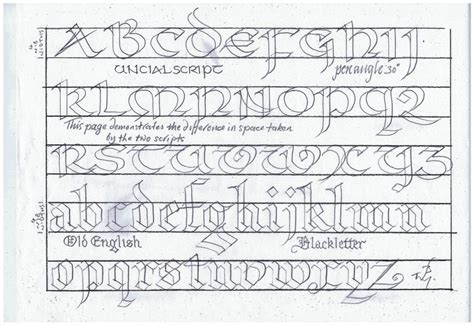 ABCDEFGHIJ
UNCIALSCRIPT penangle 30°
KLMNNOPQ2
This page demonstrates the difference in space taken
by the two scripts
RSTUVWXYZ
abcdefghijklmn
Old English Blackletter
opqrstuvwxyz